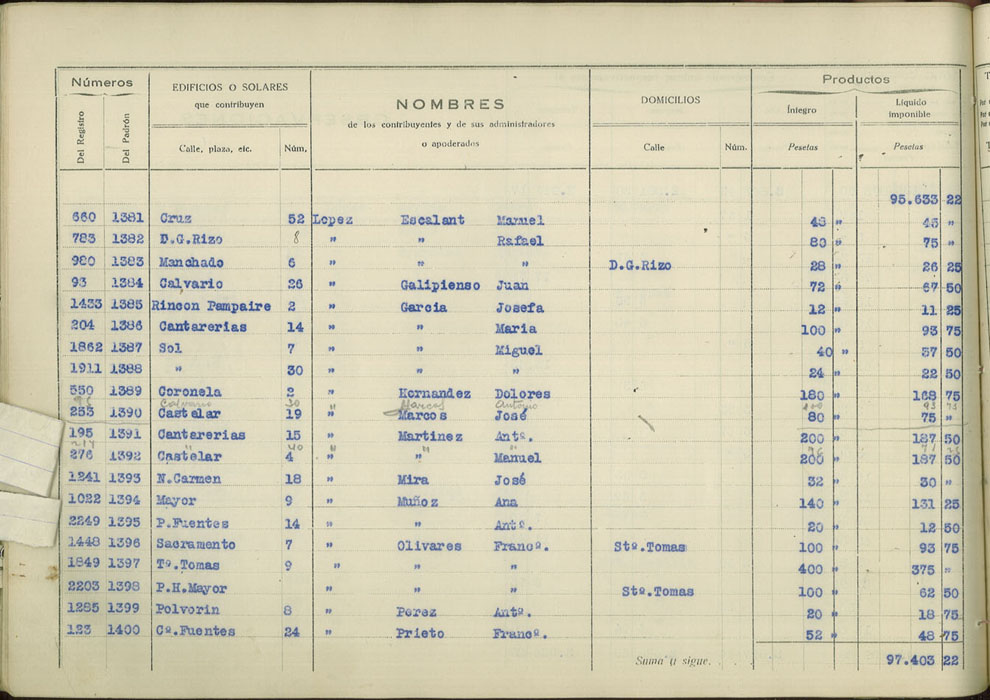 Números EDIFICIOS O SOLARES que contribuyen NOMBRES de los contribuyentes y de sus administradores o apoderados DOMICILIOS Productos
Del Registro Del Padrón Calle, plaza, etc. Núm. Calle Núm. Íntegro Pesetas Líquido imponible Pesetas
95.633 22
660 1381 Cruz 52 Lopez Escalant Manuel 48 " 45 "
783 1382 D.G.Rizo 8 " " Rafael 80 " 75 "
980 1383 Manchado 6 " " " D.G.Rizo 28 " 26 25
93 1384 Calvario 26 " Galipienso Juan 72 " 67 50
1433 1385 Rincon Pampaire 2 " Garcia Josefa 12 " 11 25
204 1386 Cantarerias 14 " " Maria 100 " 93 75
1862 1387 Sol 7 " " Miguel 40 " 37 50
1911 1388 " 30 " " " 24 " 22 50
550 1389 Coronela 2 " Hernandez Dolores 180 " 168 75
Calvario 30 " Marcos Antonio 100 93 75
253 1390 Castelar 19 " Marcos José 80 " 75 "
195 1391 Cantarerias 15 " Martinez Antº. 200 " 187 50
217 " 40 " "
276 1392 Castelar 4 " " Manuel 200 " 187 50
1241 1393 N.Carmen 18 " Mira José 32 " 30 "
1022 1394 Mayor 9 " Muñoz Ana 140 " 131 25
2249 1395 P.Fuentes 14 " " Antº. 20 " 12 50
1448 1396 Sacramento 7 " Olivares Francº. Stº.Tomas 100 " 93 75
1849 1397 Tº.Tomas 9 " " " 400 " 375 "
2203 1398 P.H.Mayor " " " Stº.Tomas 100 " 62 50
1285 1399 Polvorin 8 " Perez Antº. 20 " 18 75
123 1400 Cº.Fuentes 24 " Prieto Francº. 52 " 48 75
Suma y sigue. . . . 97.403 22